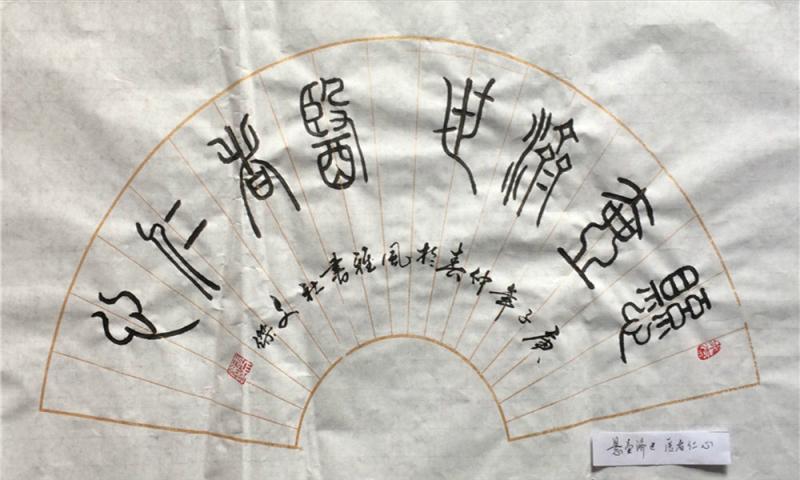 懸壺濟世醫者仁心
庚子年仲春於風雅書社文
悬壶济世 医者仁心